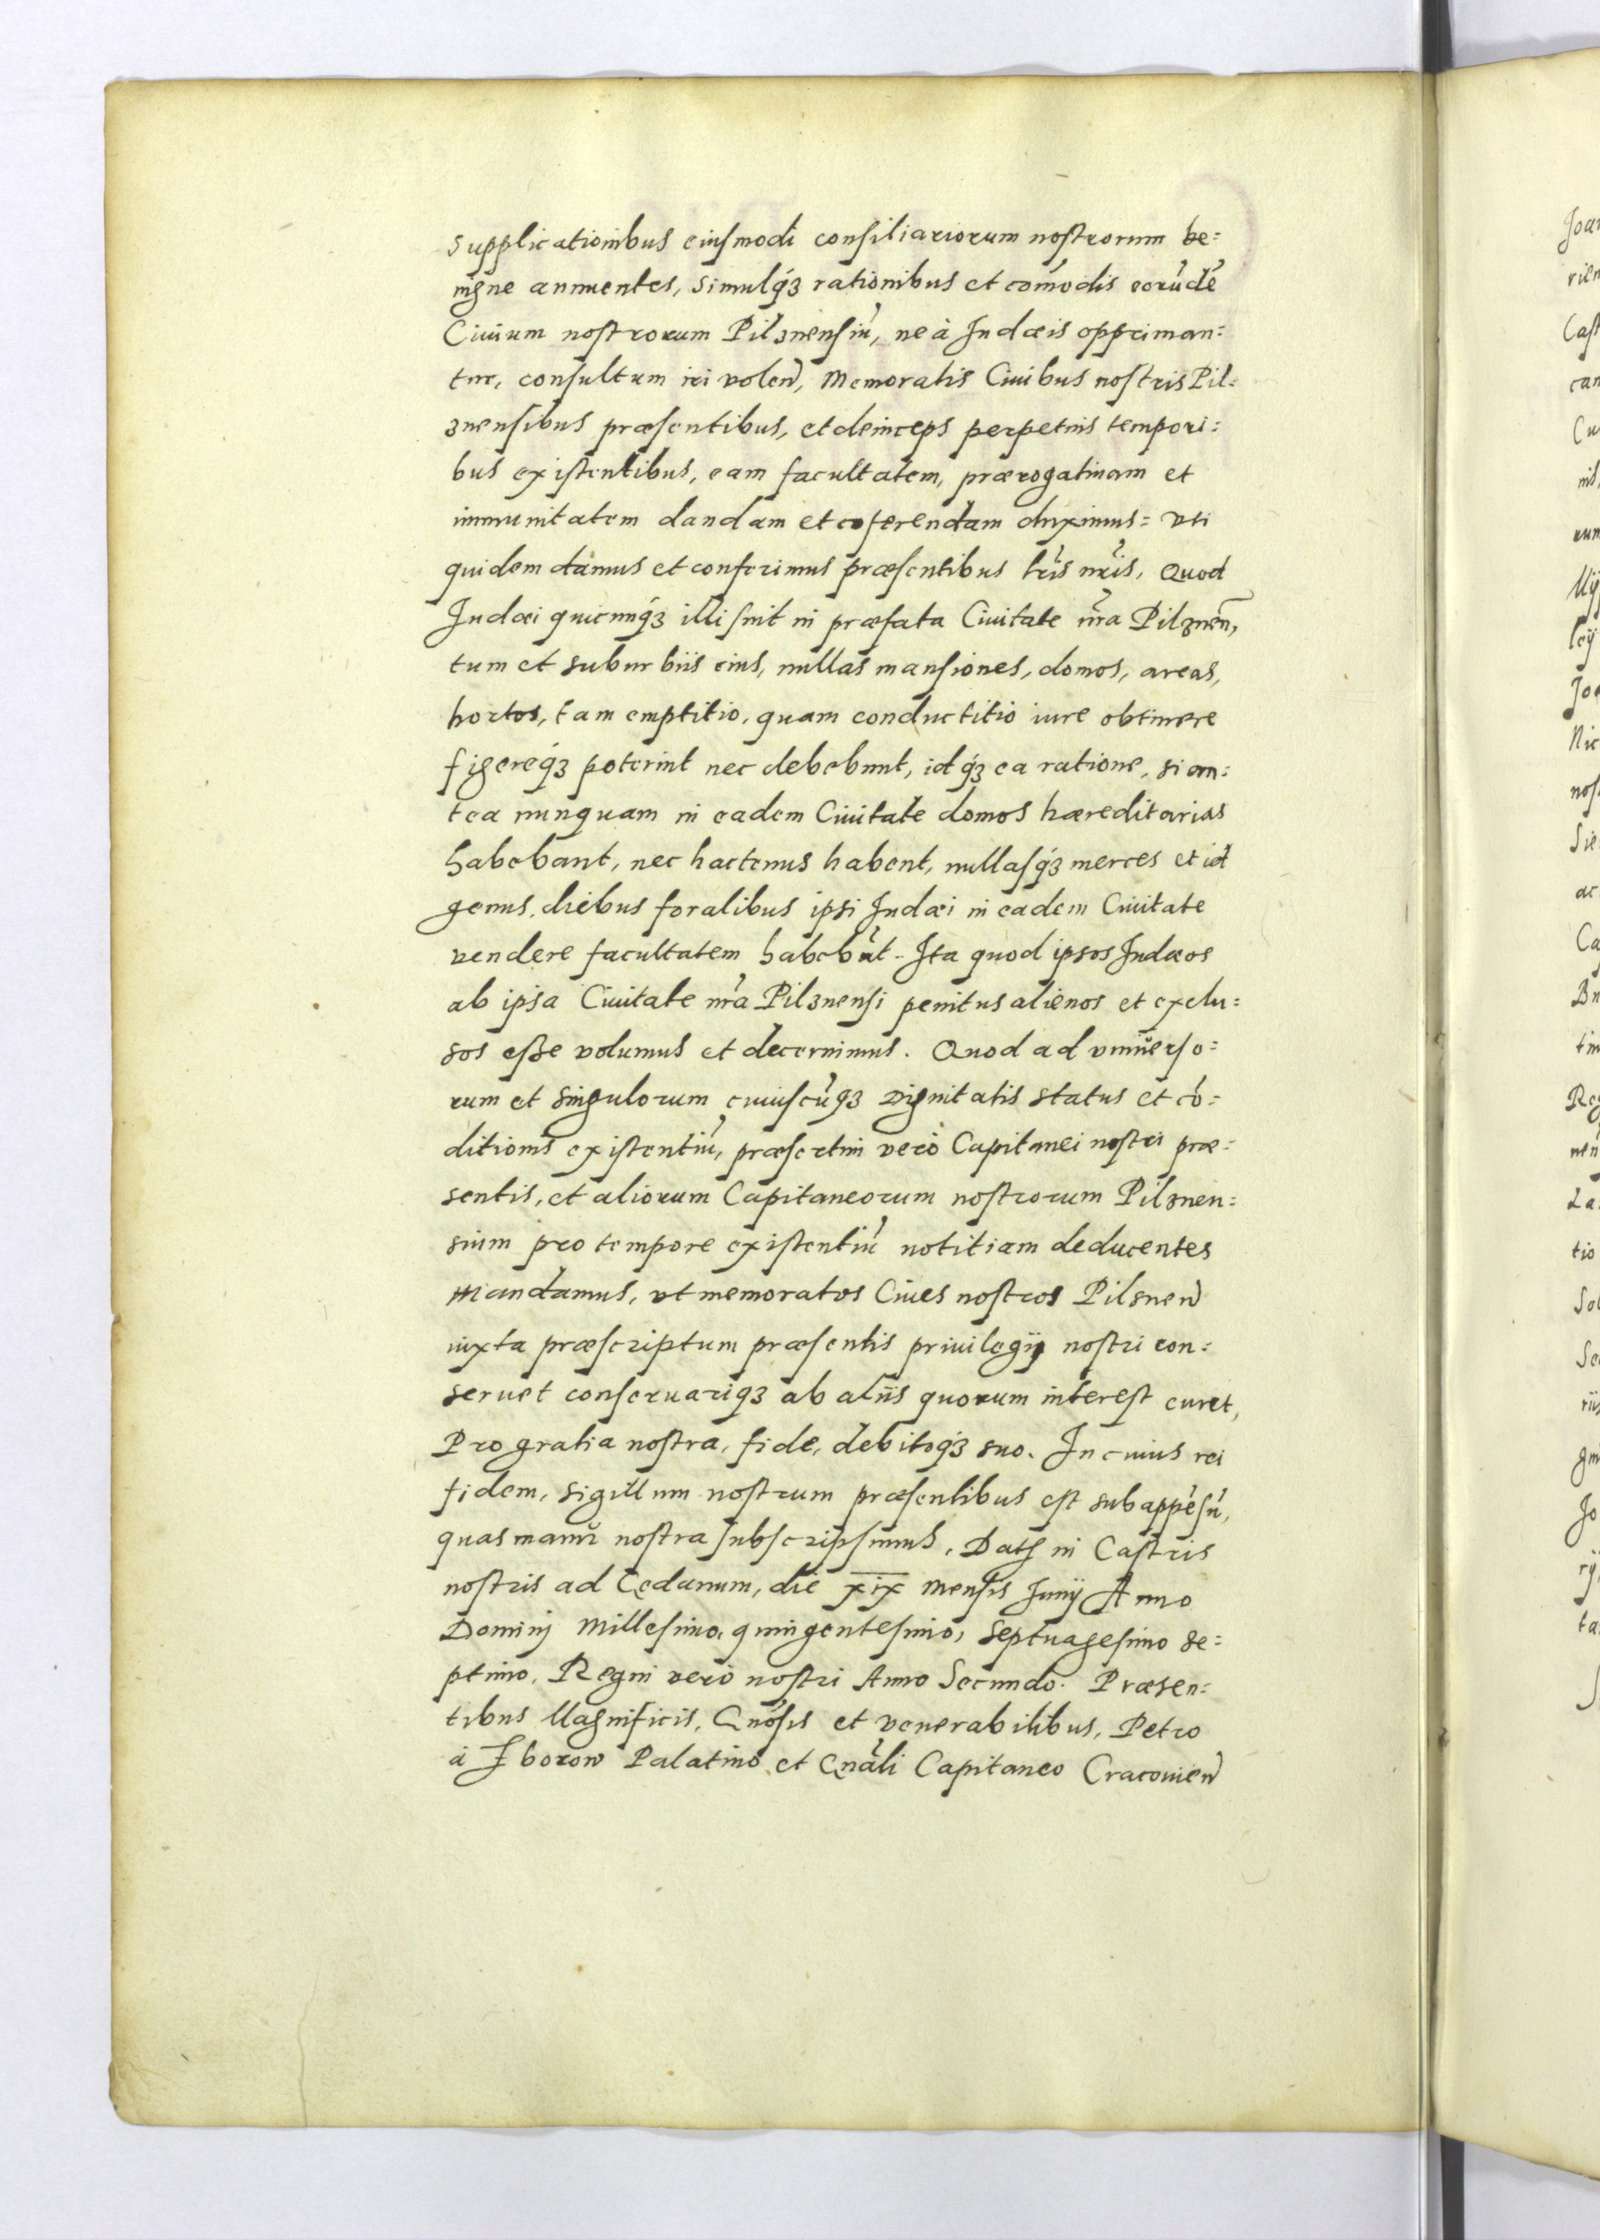 Supplicationibus eiusmodi consiliariorum nostrorum be=
nigne annuentes, simulq́ꝫ rationibus et com̃odis eorũdẽ
Ciuium nostrorum Pilznensiũ, ne à Iudæis oppriman=
tur, consultum iri voleñ, Memoratis Ciuibus nostris Pil=
znensibus præsentibus, et deinceps perpetuis tempori=
bus existentibus, eam facultatem, prærogatiuam et
immunitatem dandam et cõferendam duximus= vti
quidem damus et conferimus præsentibus lr̃is nr̃is, Quod
Iudæi quicunq́ꝫ illi sint in præfata Ciuitate nr̃a Pilzneñ,
tum et suburbiis eius, nullas mansiones, domos, areas,
hortos, tam emptitio, quam conductitio iure obtinere
figereq́ꝫ poterint nec debebunt, idq́ꝫ ea ratione, si an=
tea nunquam in eadem Ciuitate domos hæreditarias
habebant, nec hactenus habent, nullasq́ꝫ merces et id
genus, diebus foralibus ipsi Iudæi in eadem Ciuitate
vendere facultatem habebũt. Ita quod ipsos Iudæos
ab ipsa Ciuitate nr̃a Pilznensi penitus alienos et exclu=
sos esße volumus et decernimus. Quod ad vniuerso=
rum et singulorum cuiuscũqꝫ Dignitatis status et cõ=
ditionis existentiũ, præsertim verò Capitanei nostri præ=
sentis, et aliorum Capitaneorum nostrorum Pilznen=
sium pro tempore existentiũ notitiam deducentes
Mandamus, vt memoratos Ciues nostros Pilzneñ
iuxta præscriptum præsentis priuilegij nostri con=
seruet conseruariqꝫ ab aliis quorum interest curet,
Pro gratia nostra, fide, debitoq́ꝫ suo. In cuius rei
fidem, Sigillum nostrum præsentibus est subappẽsũ,
quas manu nostra subscripsimus, Datꝭ in Castris
nostris ad Gedanum, die xix Mensis Junij Anno
Dominj Millesimo, quingentesimo, Septuagesimo Se=
ptimo, Regni verò nostri Anno Secundo. Præsen=
tibus Magnificis, Gñosis et venerabilibus, Petro
à Zborow Palatino et Gñali Capitaneo Cracouieñ